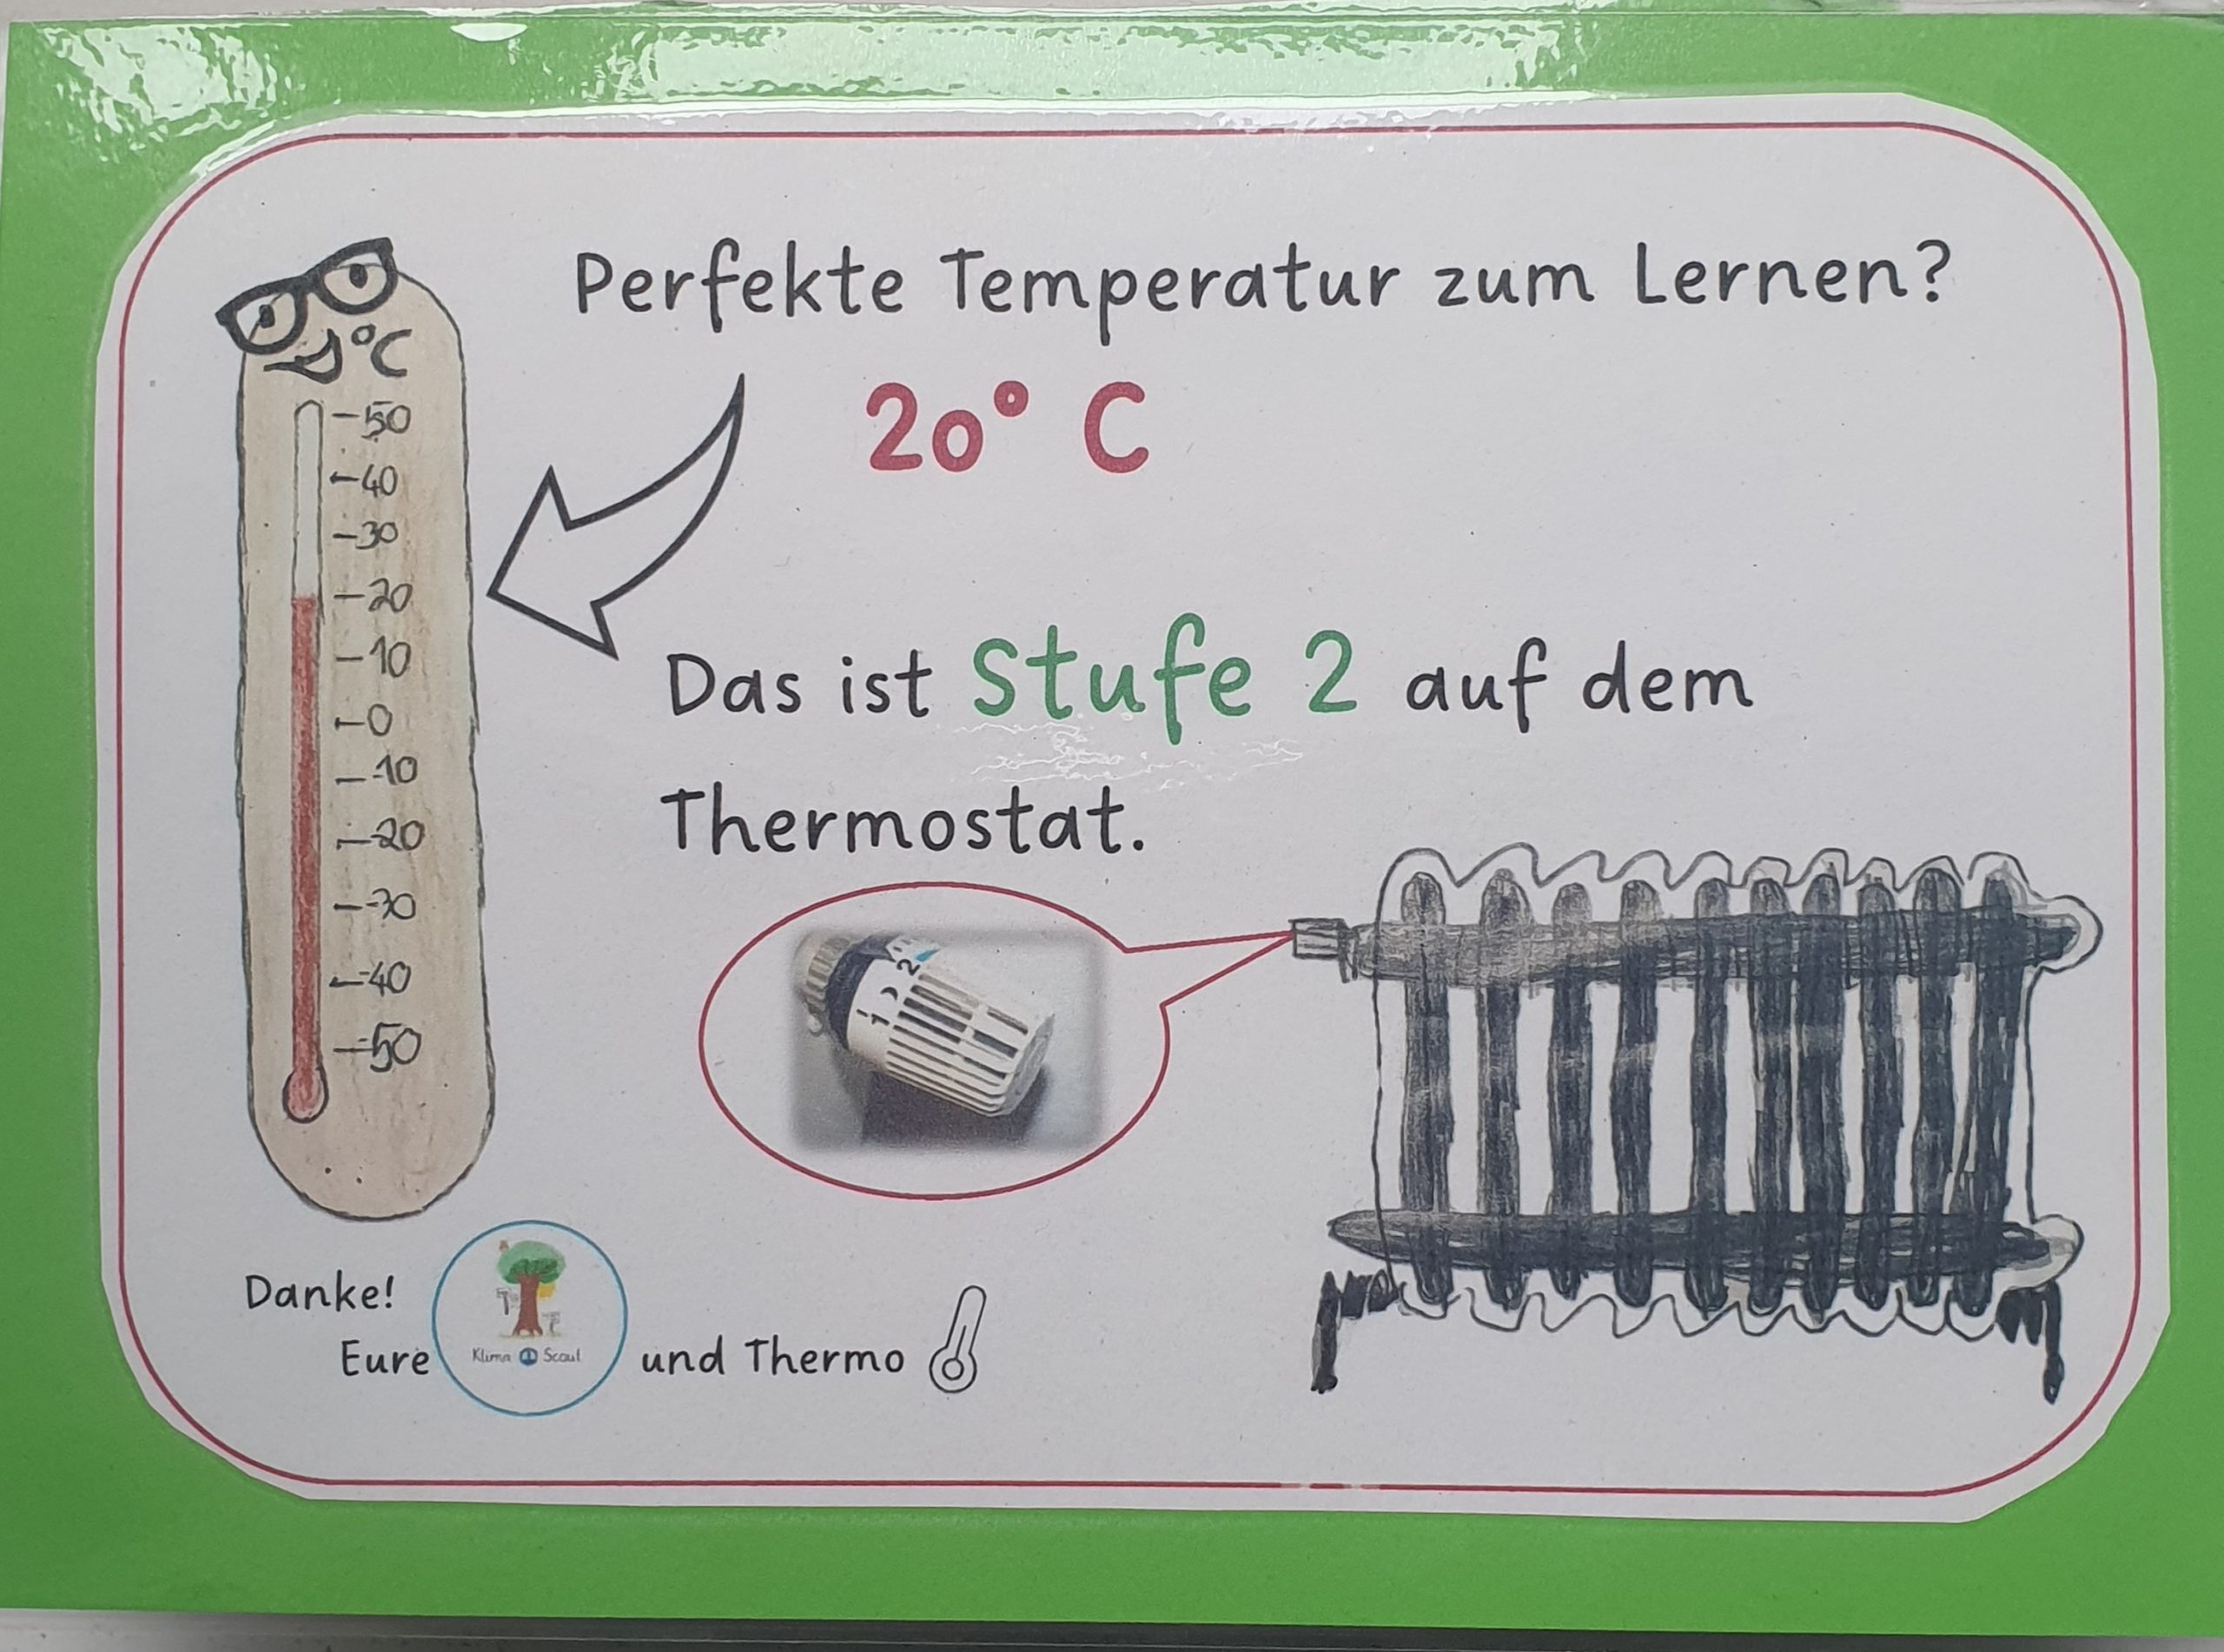 Perfekte Temperatur zum Lernen?
20° C
°C
50
40
30
20
10
0
-10
-20
-30
-40
-50
Das ist Stufe 2 auf dem
Thermostat.
2
1
Danke!
Eure
Klima Scout
und Thermo